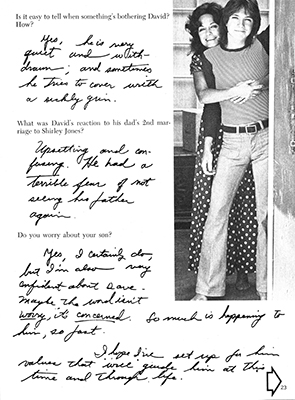 Is it easy to tell when something's bothering David?
How?
Yes, he is very
quiet and with-
drawn; and sometimes
he tries to cover with
a sickly grin.
What was David's reaction to his dad's 2nd mar-
riage to Shirley Jones?
Upsetting and con-
fusing. He had a
terrible fear of not
seeing his father
again.
Do you worry about your son?
Yes, I certainly do,
but I'm also very
confident about Dave.
Maybe the word isn't
worry, it's concerned. So much is happening to
him, so fast.
I hope I've set up for him
values that will guide him at this
time and through life.
23